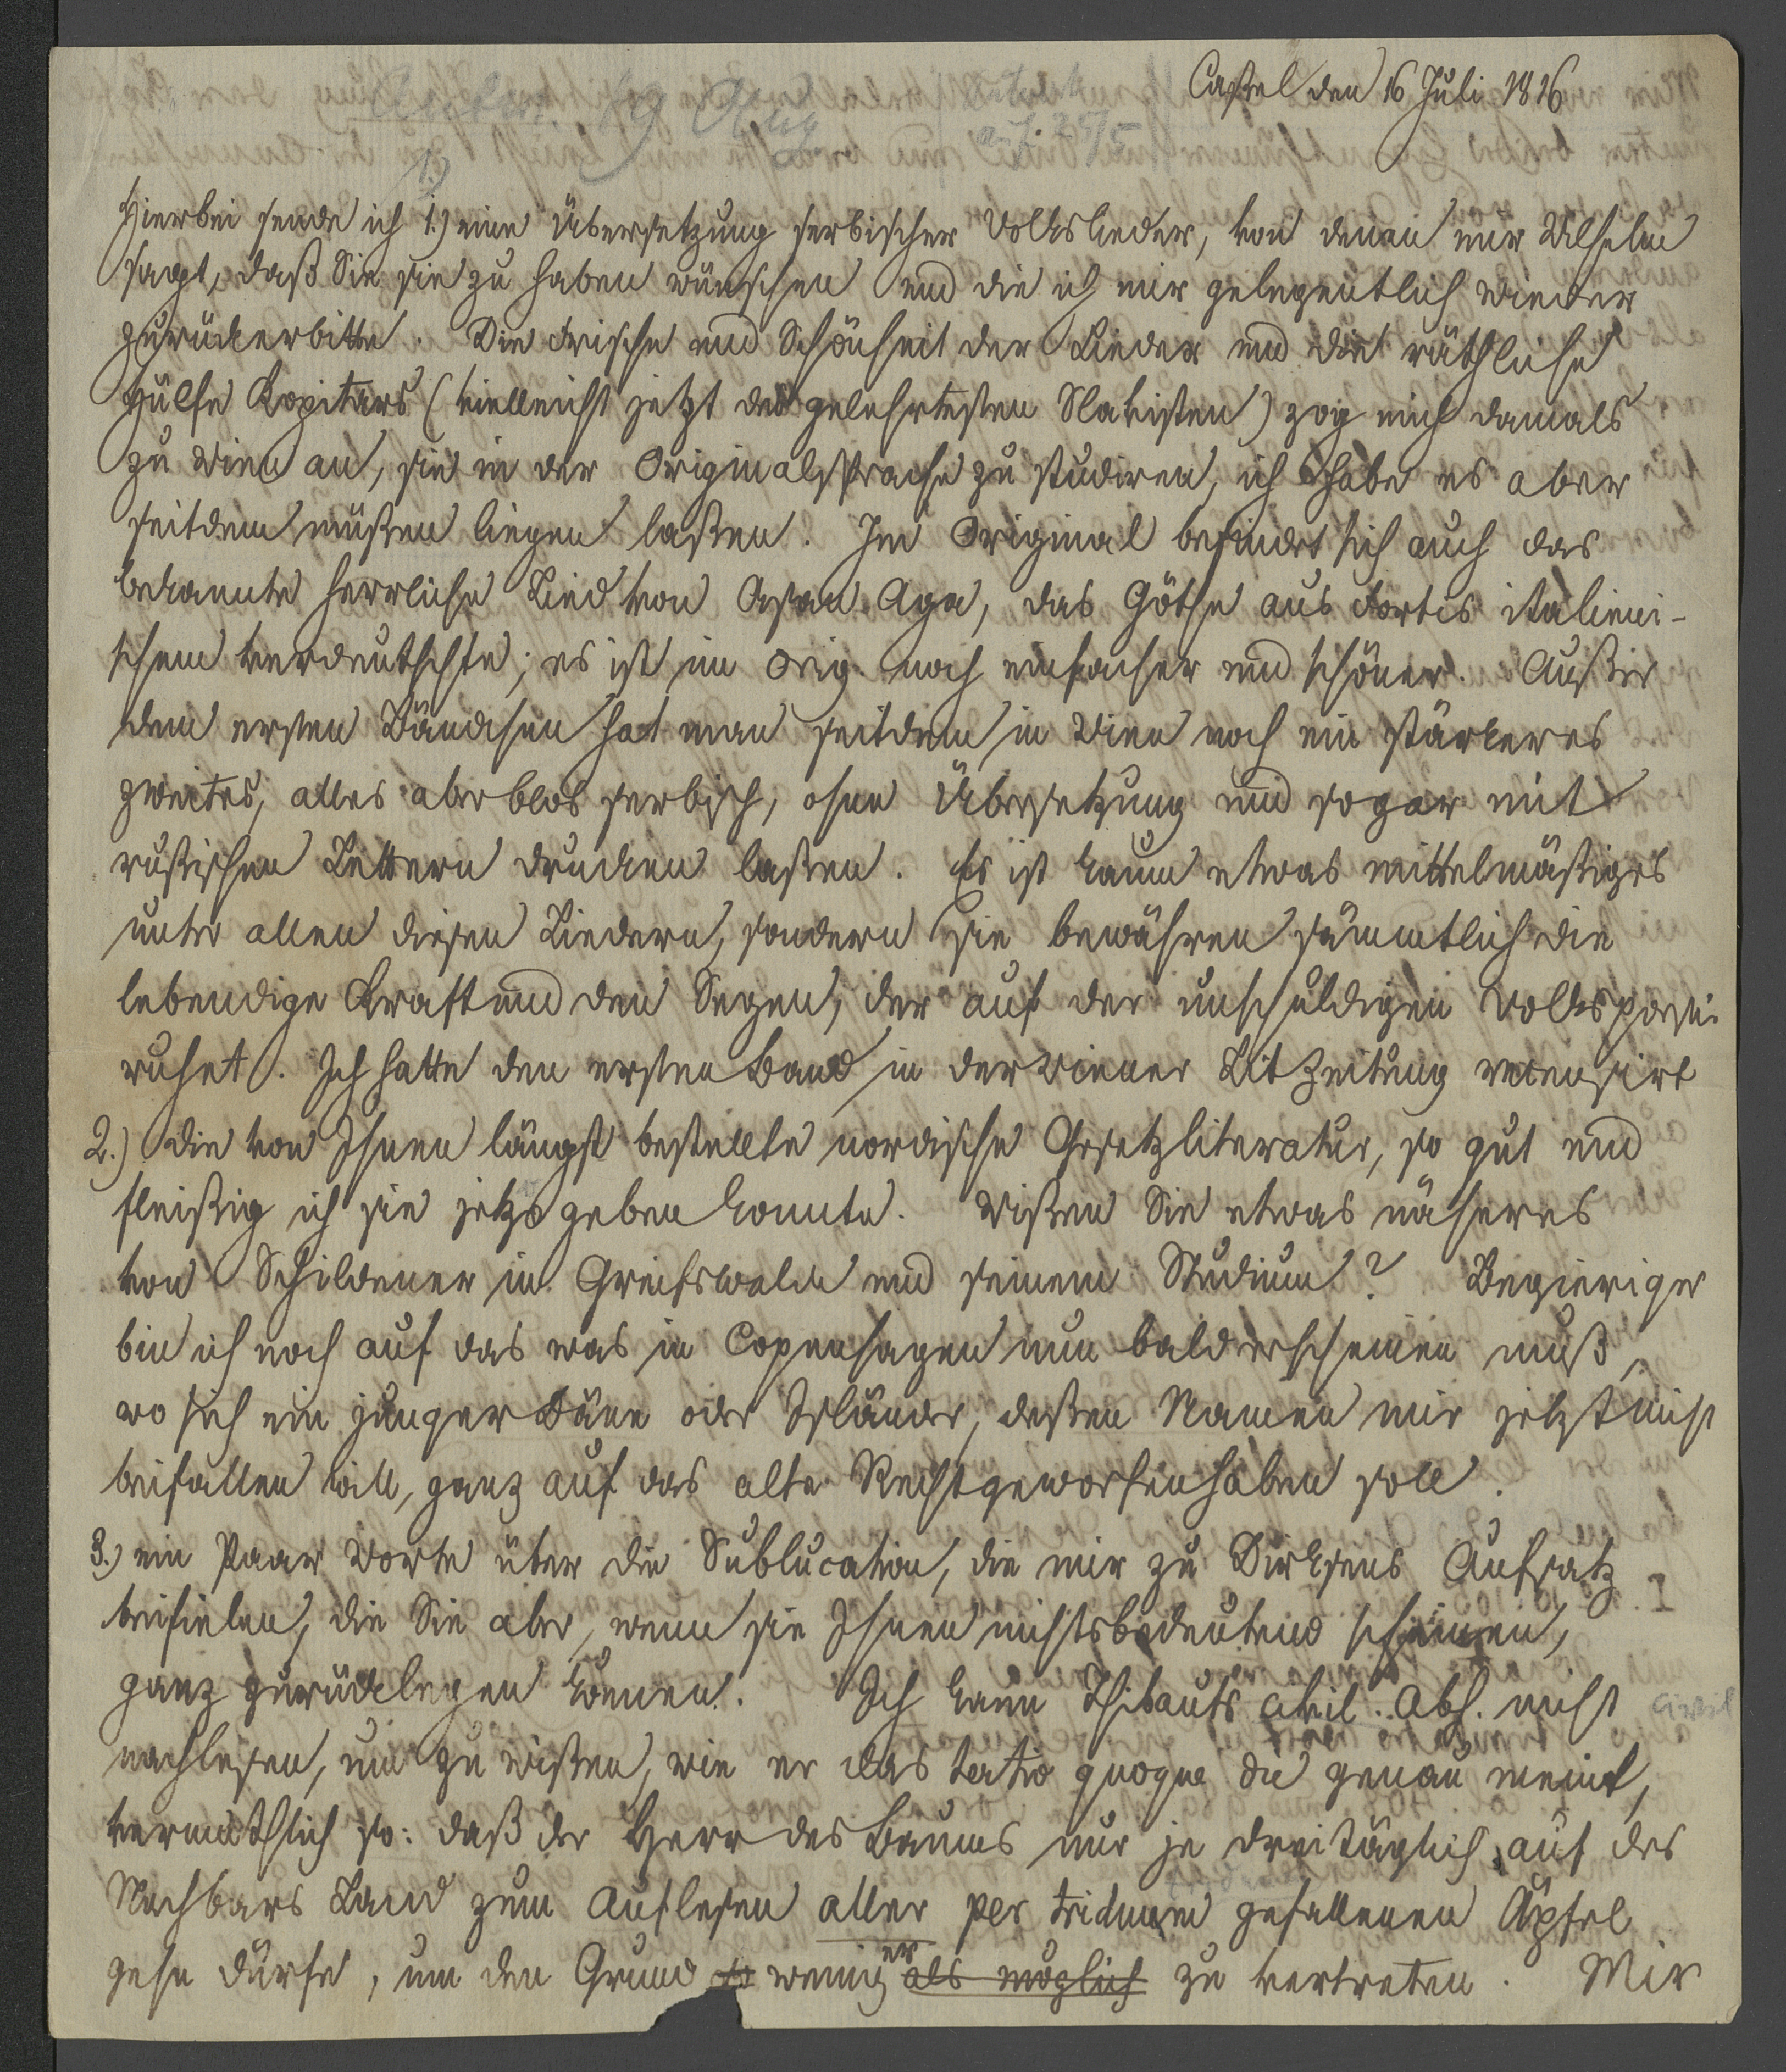 Caßel den 16 Juli 1816
Antw. 19 Aug
1.)
Hierbei sende ich 1.) eine Übersetzung serbischer Volkslieder, von denen mir Wilhelm
sagt, daß Sie sie zu haben wünschen und die ich mir gelegentlich wieder
zurückerbitte. Die Frische und Schönheit der Lieder und die räthliche
Hülfe Kopitars (vielleicht jetzt des gelehrtesten Slavisten) zog mich damals
zu Wien an, sie in der Originalsprache zu studiren, ich habe es aber
seitdem müßen liegen laßen. Im Original befindet sich auch das
bekannte herrliche Lied von Asan Aga, das Göthe aus Fortis italieni-
schem verdeutschte; es ist im Orig. noch einfacher und schöner. Außer
dem ersten Bändchen hat man seitdem in Wien noch ein stärkeres
zweites, alles aber blos serbisch, ohne Übersetzung und sogar mit
rußischen Lettern drucken laßen. Es ist kaum etwas mittelmäßiges
unter allen diesen Liedern, sondern sie bewähren sämmtlich die
lebendige Kraft und den Segen, der auf der unschuldigen Volkspoesie
ruhet. Ich hatte den ersten Band in der Wiener Lit Zeitung recensirt
2.) die von Ihnen längst bestellte nordische Gesetzliteratur, so gut und
fleißig ich sie jetzo geben konnte. Wißen Sie etwas näheres
von Schildener in Greifswalde und seinem Studium? Begieriger
bin ich noch auf das was in Copenhagen nun bald erscheinen muß,
wo sich ein junger Däne oder Isländer, deßen Namen mir jetzt nicht
beifallen will, ganz auf das alte Recht geworfen haben soll.
3.) ein Paar Worte über die Sublucation, die mir zu Dirksens Aufsatz
beifielen, die Sie aber, wenn sie Ihnen nichtsbedeutend scheinen,
ganz zurücklegen können. Ich kann Thibauts civil. Abh. nicht civil
nachlesen, um zu wißen, wie er das tertio quoque die genau meint,
vermuthlich so: daß der Herr des Baums nur je dreitäglich auf des
Nachbars Land zum Auflesen aller per triduum gefallenen Äpfel
gehe dürfe, um den Grund so weniger als möglich zu vertreten. Mir